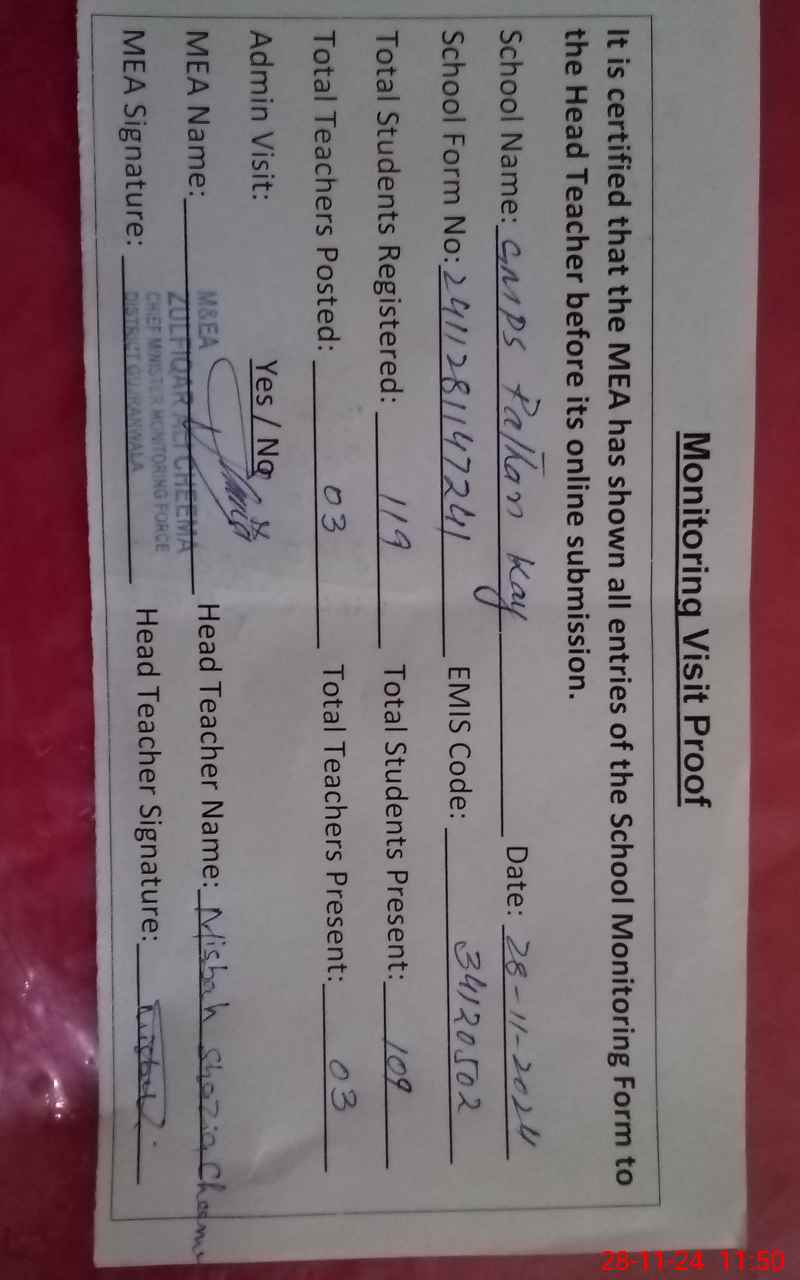 Monitoring Visit Proof
It is certified that the MEA has shown all entries of the School Monitoring Form to
the Head Teacher before its online submission.
School Name: GMPS Pathan Kay Date: 28-11-2024
School Form No: 2411281147241 EMIS Code: 34120502
Total Students Registered: 119 Total Students Present: 109
Total Teachers Posted: 03 Total Teachers Present: 03
Admin Visit: Yes / No
M&EA
MEA Name: ZULFIQAR ALI CHEEMA Head Teacher Name: Misbah Shazia Cheema
CHIEF MINISTER MONITORING FORCE
MEA Signature: DISTRICT GUJRANWALA Head Teacher Signature:
28-11-24 11:50